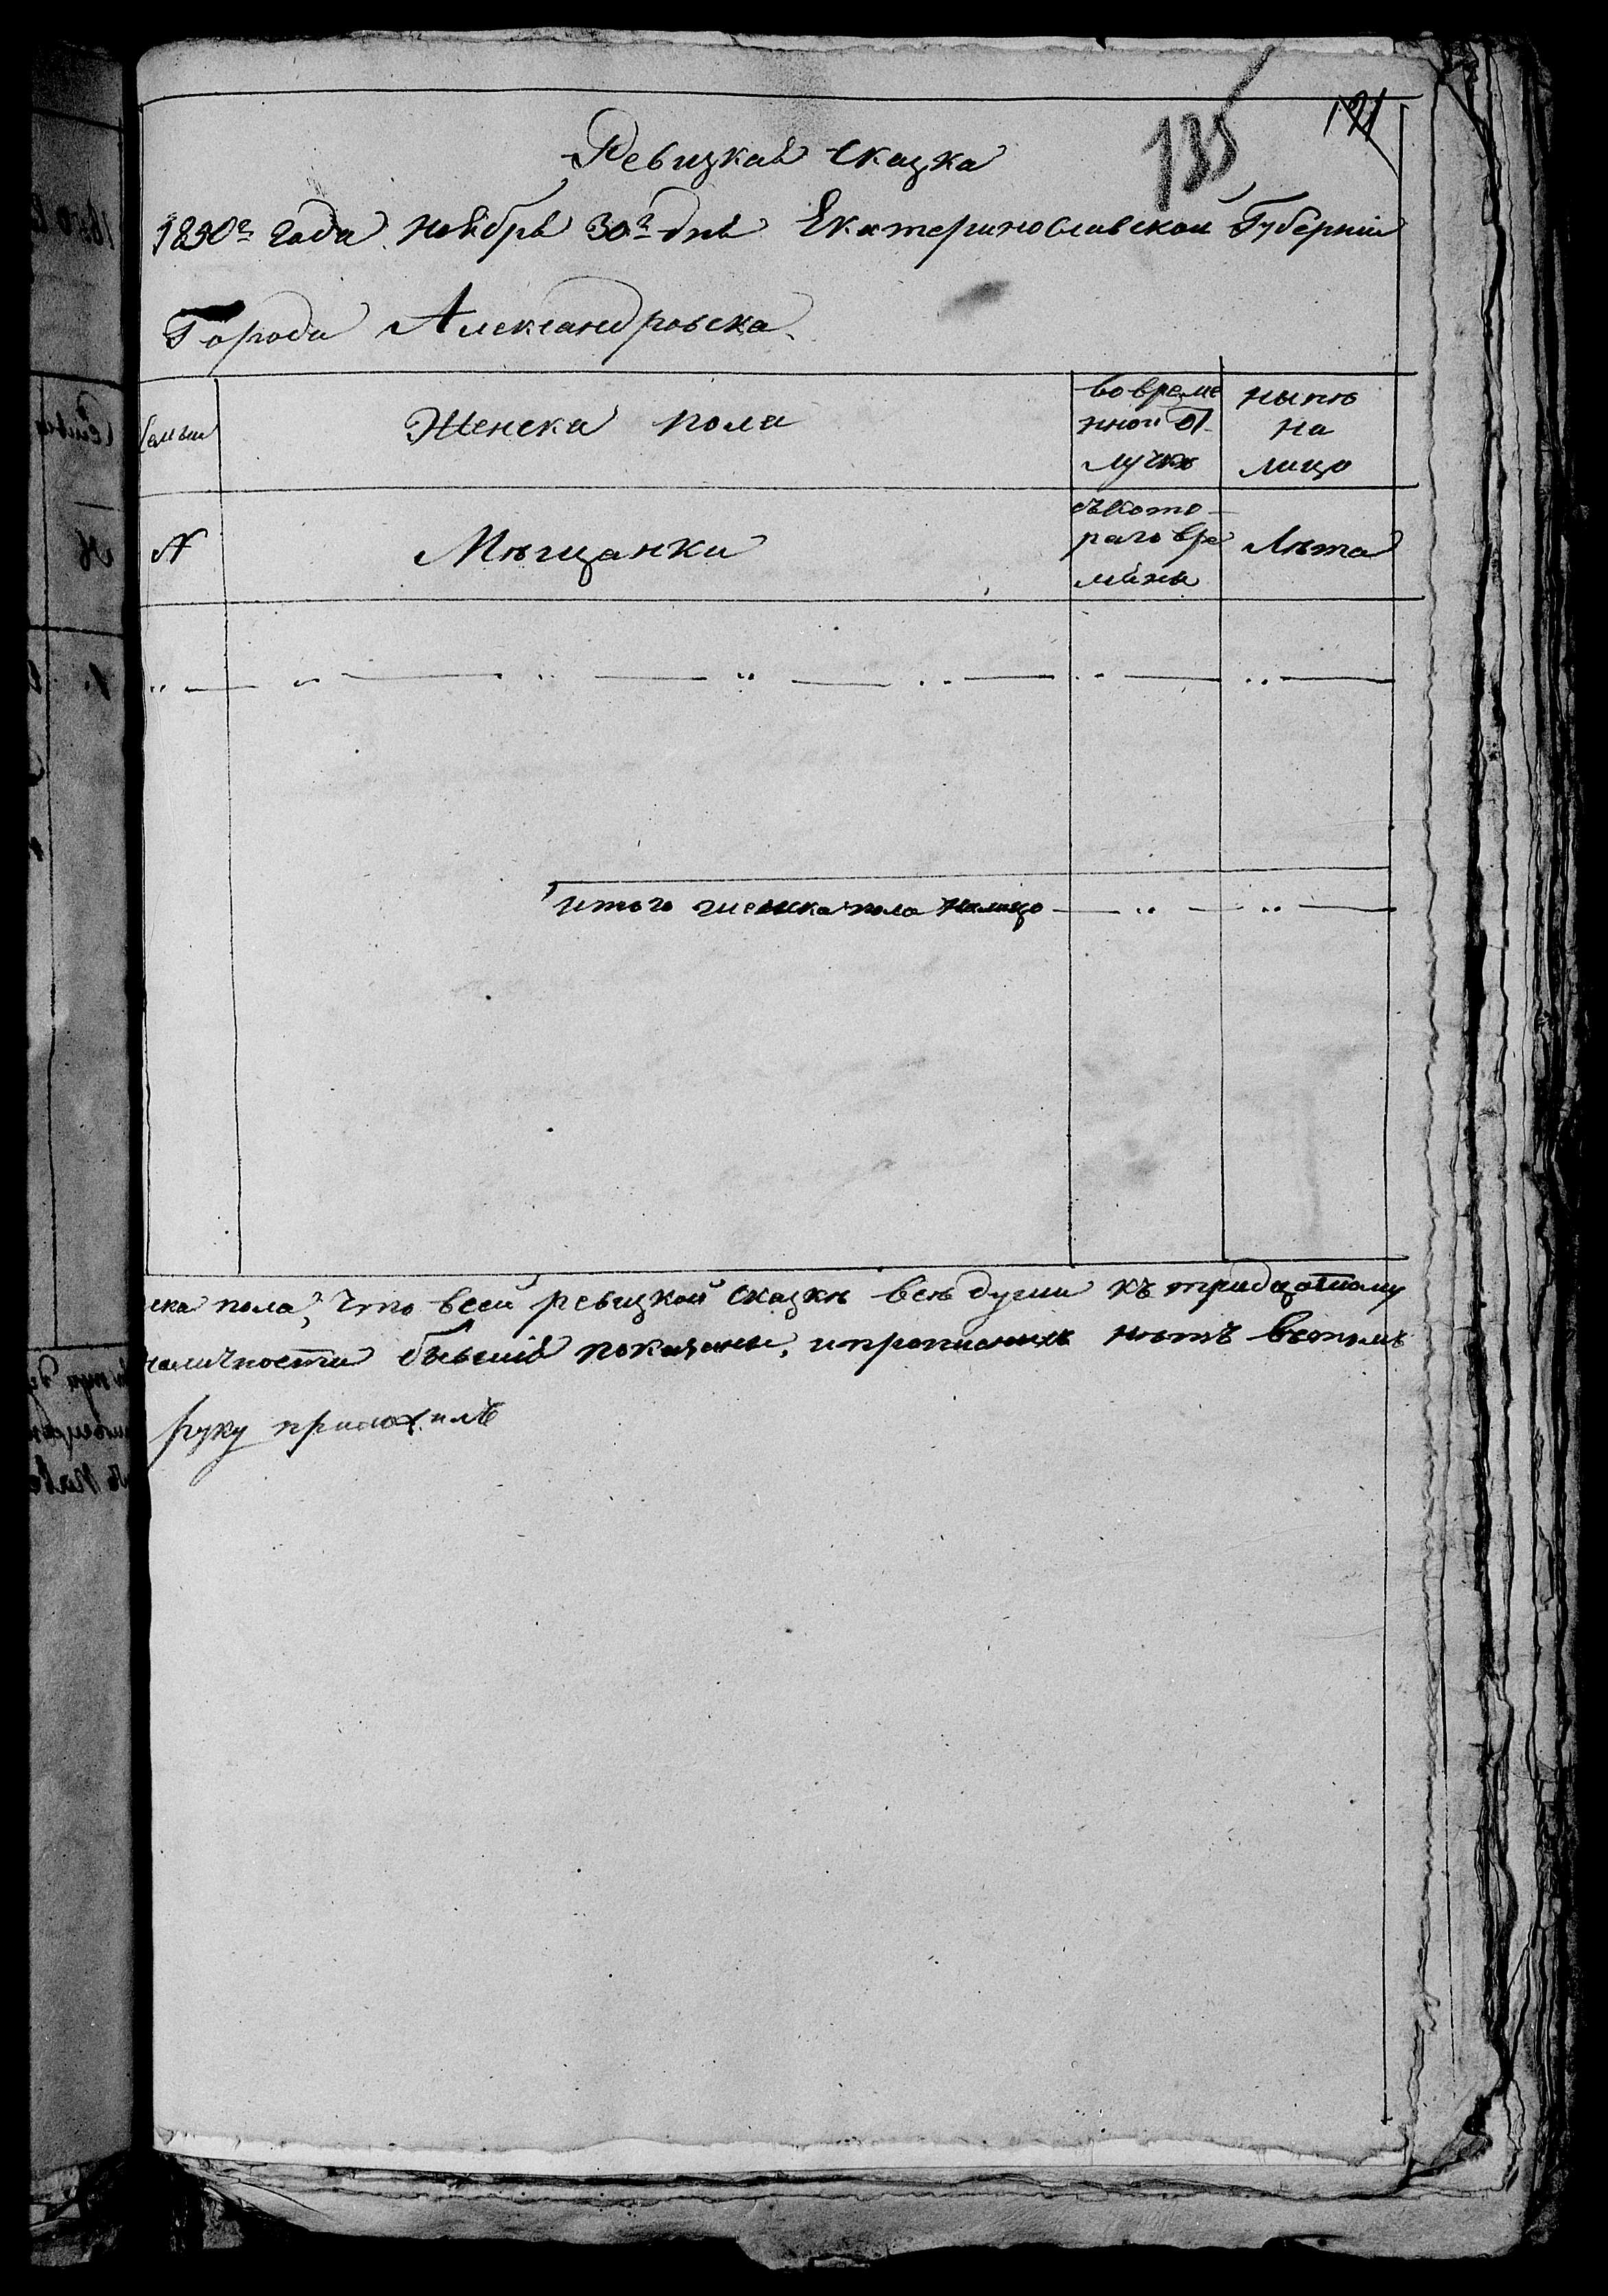 135
121
Ревизкая Сказка
1850го года ноября 30го дня Екатеринославской Губернии
Города Александровска
Семьи
Женска пола
во време
нной от
лучке
ныне
на
лицо
N
Мѣщанки
съ кото
раго вре
мени
Лѣта
итого женска пола налицо
ска пола, что всей ревизкой сказкѣ всѣ души къ тридцатому
наличности бывшия показаны, и прописных нѣтъ вътомъ
руку приложилъ